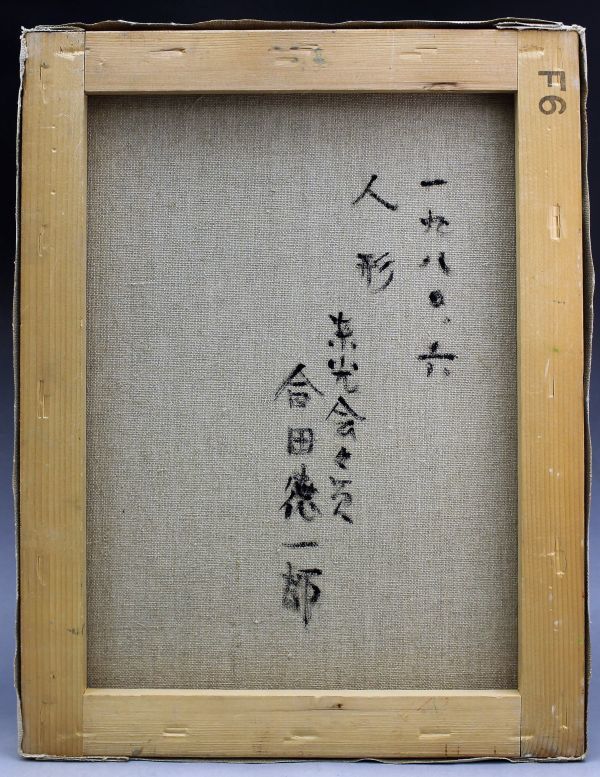 一九八〇、六
人形
東光会々員
合田德一郎
F6